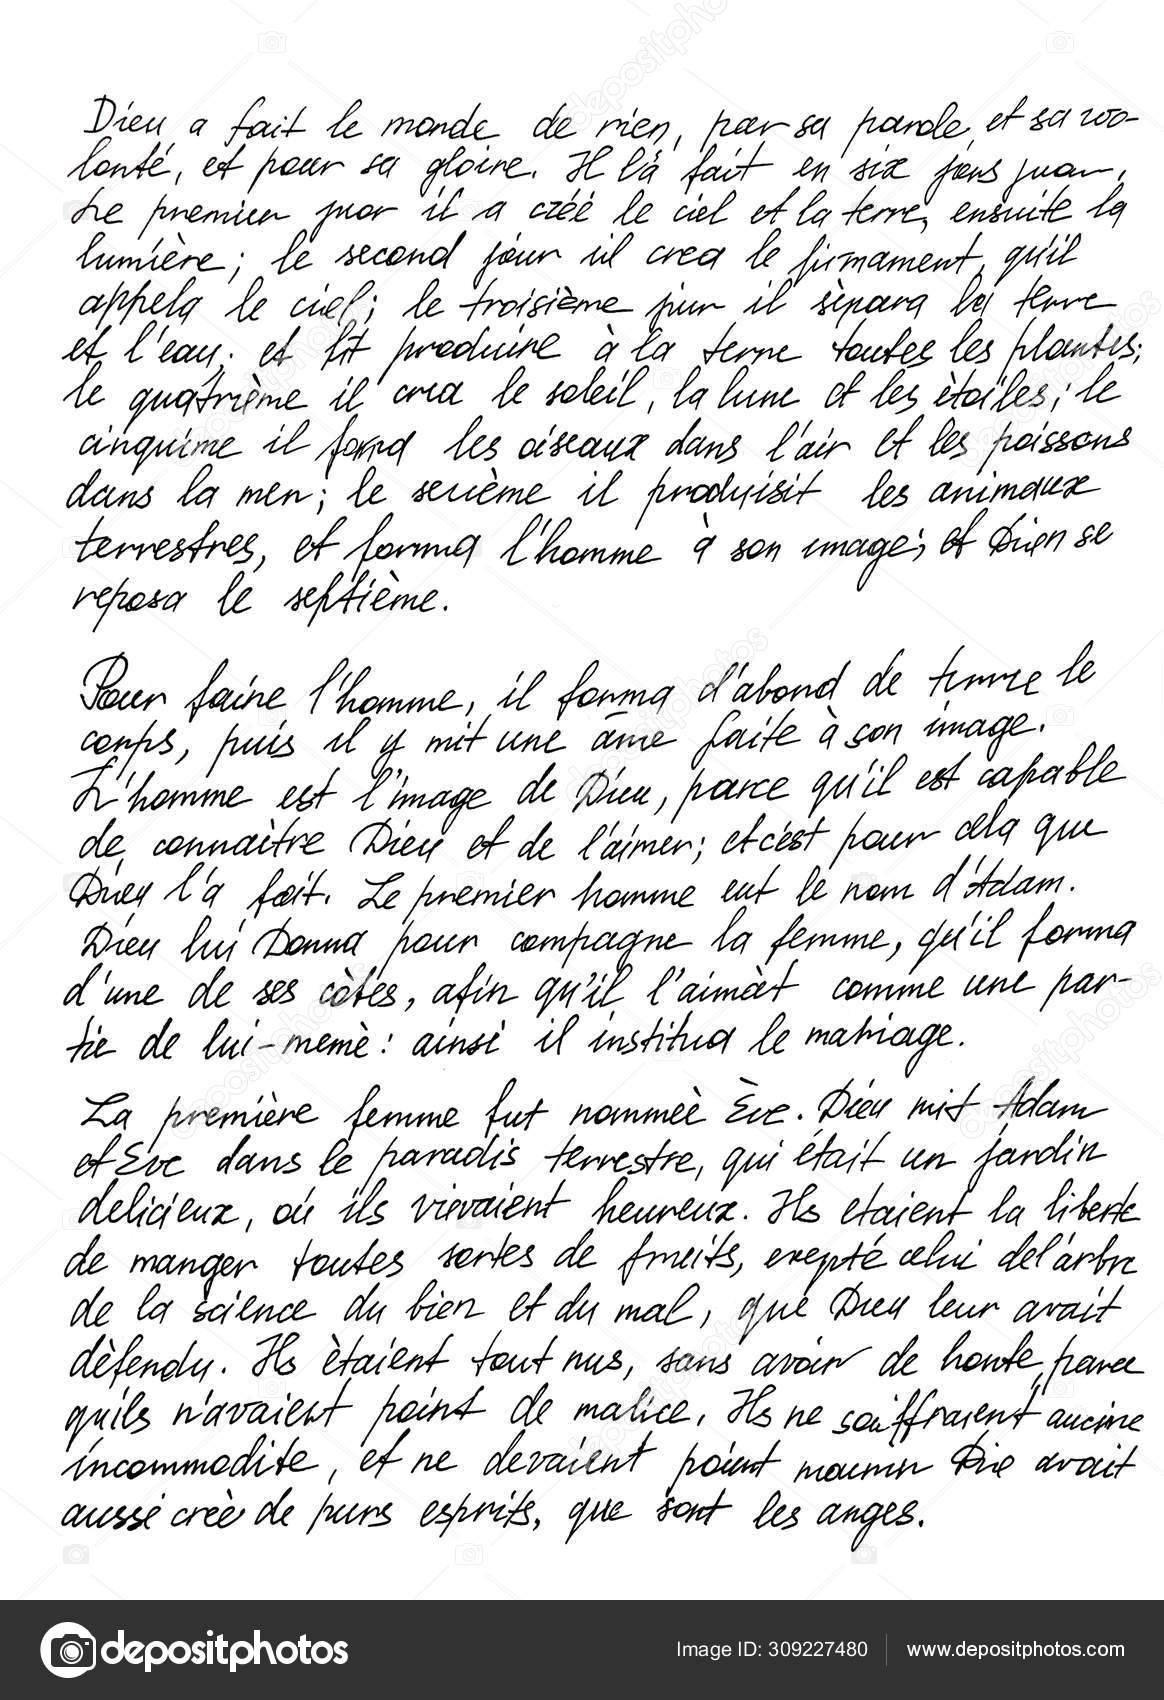 Dieu a fait le monde de rien, par sa parole et sa vo-
lonté, et pour sa gloire. Il l'a fait en six jours
Le premier jour il a créé le ciel et la terre, ensuite la
lumière; le second jour il crea le firmament, qu'il
appela le ciel; le troisième jour il sèpara la terre
et l'eau; et fit produire à la terre toutes les plantes;
le quatrième il crea le soleil, la lune et les ètoiles; le
cinquime il forma les oiseaux dans l'air et les poissons
dans la mer; le sexième il produisit les animaux
terrestres, et forma l'homme à son image; et Dieu se
reposa le septième.
Pour faire l'homme, il forma d'abord de terre le
corps, puis il y mit une âme faite à son image.
L'homme est l'image de Dieu, parce qu'il est capable
de connaitre Dieu et de l'aimer; et c'est pour cela que
Dieu l'a fait. Le premier homme eut le nom d'Adam.
Dieu lui Donna pour compagne la femme, qu'il forma
d'une de ses còtes, afin qu'il l'aimàt comme une par-
tie de lui-memè: ainsi il institua le mariage.
La première femme fut nommeè Ève. Dieu mit Adam
et Eve dans le paradis terrestre, qui était un jardin
delicieux, où ils vivaient heureux. Ils etaient la liberte
de manger toutes sortes de fruits, exepté celui de l'arbre
de la science du bien et du mal, que Dieu leur avait
dèfendu. Ils ètaient tout nus, sans avoir de honte, parce
qu'ils n'avaient point de malice. Ils ne souffraient aucune
incommodite, et ne devaient point mourir Die avait
aussi creè de purs esprits, que sont les anges.
depositphotos
Image ID: 309227480 www.depositphotos.com